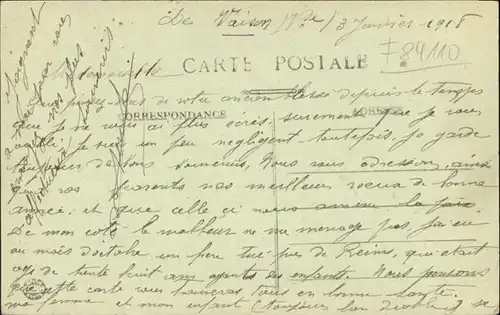 De Vaison (Vse) 3 Janvier 1918
F84110
CARTE POSTALE
Mademoiselle
CORRESPONDANCE
ADRESSE
Que pensez vous de votre ancien blessé depuis le temps
que je ne vous ai plus écrit, surement que je vous
oublié, je suis un peu negligent toutefois, je garde
toujours de bons souvenirs, Nous vous adressons, ainsi
que vos parents nos meilleurs voeux de bonne
année, et que celle ci nous amene la paix.
De mon coté le malheur ne me menage pas, j'ai eu
au mois d'octobre un frere tué pres de Reims, qui etait
agé de trente huit ans ayant des enfants. Nous pensons
que cette carte vous trouvera tous en bonne santé.
ma femme et mon enfant (toujours bien diable) se
joignent
a moi pour vous
nos plus
souvenirs